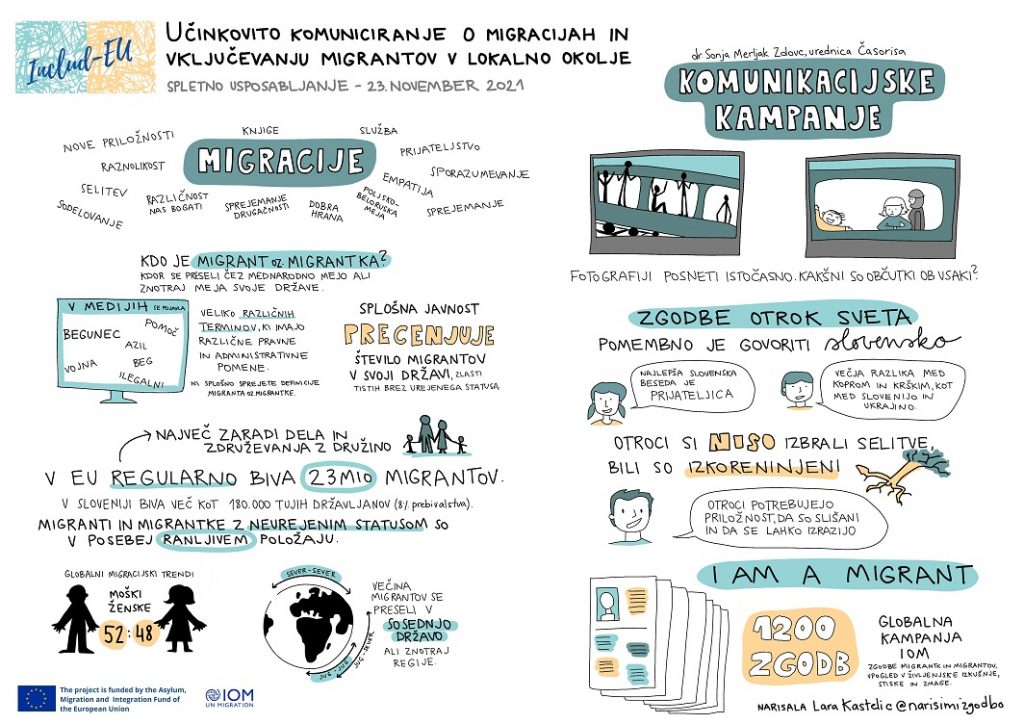 Includ-EU
UČINKOVITO KOMUNICIRANJE O MIGRACIJAH IN
VKLJUČEVANJU MIGRANTOV V LOKALNO OKOLJE
SPLETNO USPOSABLJANJE - 23. NOVEMBER 2021
MIGRACIJE
NOVE PRILOŽNOSTI
KNJIGE
SLUŽBA
PRIJATELJSTVO
RAZNOLIKOST
SPORAZUMEVANJE
EMPATIJA
SELITEV
RAZLIČNOST
NAS BOGATI
SPREJEMANJE
DRUGAČNOSTI
DOBRA
HRANA
POLJSKO-
BELORUSKA
MEJA
SPREJEMANJE
SODELOVANJE
KDO JE MIGRANT OZ. MIGRANTKA?
KDOR SE PRESELI ČEZ MEDNARODNO MEJO ALI
ZNOTRAJ MEJA SVOJE DRŽAVE.
V MEDIJIH SE POJAVLJA
BEGUNEC
POMOČ
AZIL
VOJNA
BEG
ILEGALNI
VELIKO RAZLIČNIH
TERMINOV, KI IMAJO
RAZLIČNE PRAVNE
IN ADMINISTRATIVNE
POMENE.
NI SPLOŠNO SPREJETE DEFINICIJE
MIGRANTA OZ. MIGRANTKE.
SPLOŠNA JAVNOST
PRECENJUJE
ŠTEVILO MIGRANTOV
V SVOJI DRŽAVI, ZLASTI
TISTIH BREZ UREJENEGA STATUSA.
NAJVEČ ZARADI DELA IN
ZDRUŽEVANJA Z DRUŽINO
V EU REGULARNO BIVA 23 MIO MIGRANTOV.
V SLOVENIJI BIVA VEČ KOT 180.000 TUJIH DRŽAVLJANOV (8% prebivalstva).
MIGRANTI IN MIGRANTKE Z NEUREJENIM STATUSOM SO
V POSEBEJ RANLJIVEM POLOŽAJU.
GLOBALNI MIGRACIJSKI TRENDI
MOŠKI
ŽENSKE
52 : 48
SEVER-SEVER
JUG-JUG
JUG-SEVER
VEČINA
MIGRANTOV SE
PRESELI V
SOSEDNJO
DRŽAVO
ALI ZNOTRAJ
REGIJE.
The project is funded by the Asylum,
Migration and Integration Fund of
the European Union
IOM
UN MIGRATION
dr. Sonja Merljak Zdovc, urednica Časorisa
KOMUNIKACIJSKE
KAMPANJE
FOTOGRAFIJI POSNETI ISTOČASNO. KAKŠNI SO OBČUTKI OB VSAKI?
ZGODBE OTROK SVETA
POMEMBNO JE GOVORITI slovensko
NAJLEPŠA SLOVENSKA
BESEDA JE
PRIJATELJICA
VEČJA RAZLIKA MED
KOPROM IN KRŠKIM, KOT
MED SLOVENIJO IN
UKRAJINO.
OTROCI SI NISO IZBRALI SELITVE,
BILI SO IZKORENINJENI
OTROCI POTREBUJEJO
PRILOŽNOST, DA SO SLIŠANI
IN DA SE LAHKO IZRAZIJO
I AM A MIGRANT
1200
ZGODB
GLOBALNA
KAMPANJA
IOM
ZGODBE MIGRANTK IN MIGRANTOV,
VPOGLED V ŽIVLJENJSKE IZKUŠNJE,
STISKE IN ZMAGE.
NARISALA Lara Kastelic @narisimizgodbo